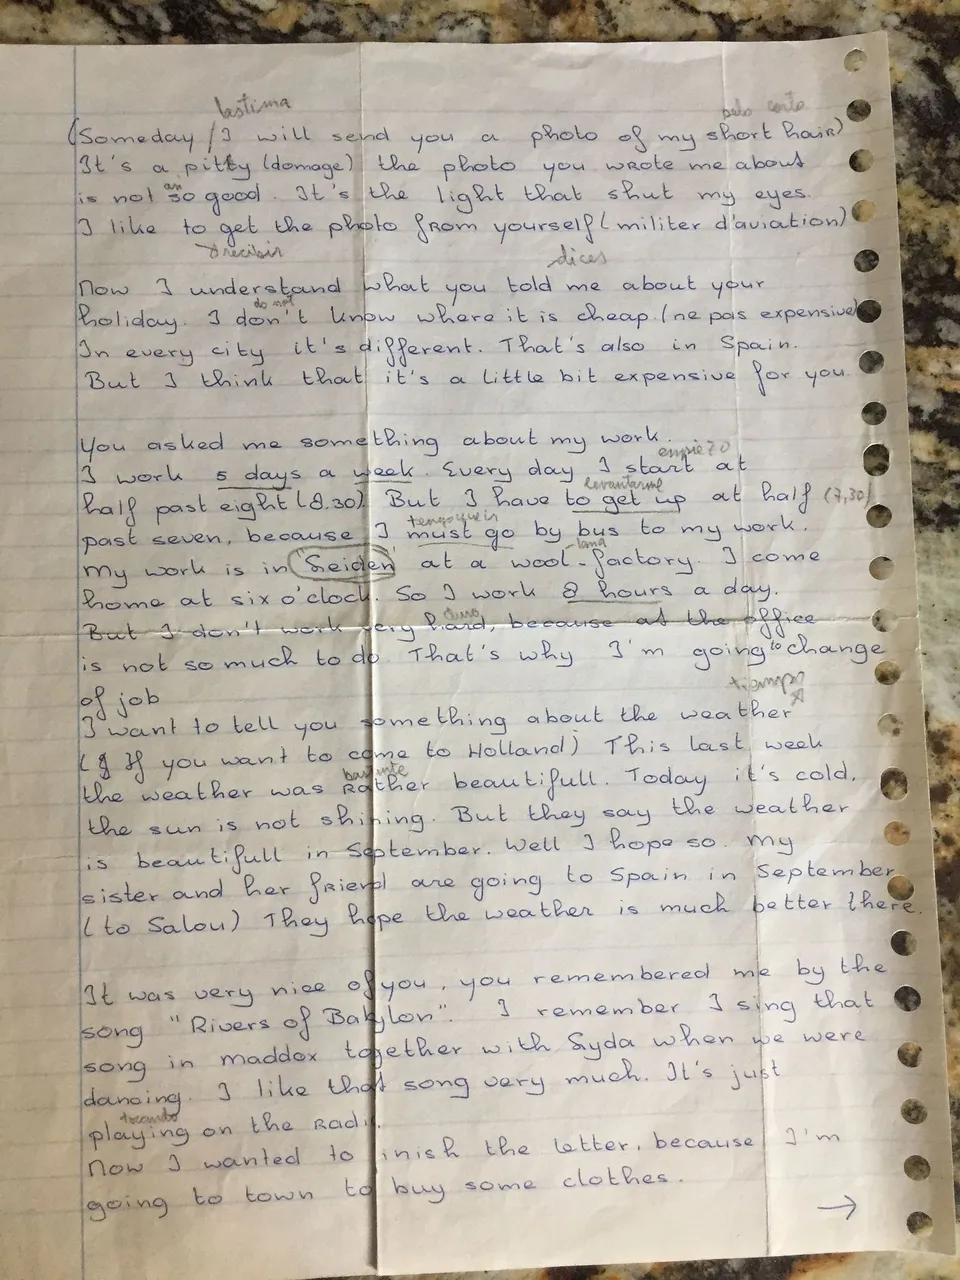 lastima pelo corto
(Someday / I will send you a photo of my short hair)
It's a pitty (domage) the photo you wrote me about
an
is not so good. It's the light that shut my eyes.
I like to get the photo from yourself (militer d'aviation)
recibir dices
Now I understand what you told me about your
do not
holiday. I don't know where it is cheap. (ne pas expensive)
In every city it's different. That's also in Spain.
But I think that it's a little bit expensive for you
You asked me something about my work.
empiezo
I work 5 days a week. Every day I start at
levantarme
half past eight (8.30). But I have to get up at half (7,30)
tengo que ir
past seven, because I must go by bus to my work.
lana
my work is in "Leiden" at a wool-factory. I come
home at six o'clock. So I work 8 hours a day.
duro
But I don't work very hard, because at the office
is not so much to do. That's why I'm going to change
of job
I want to tell you something about the weather
(If you want to come to Holland) This last week
bastante
the weather was rather beautifull. Today it's cold,
the sun is not shining. But they say the weather
is beautifull in September. Well I hope so. My
sister and her friend are going to Spain in September
(to Salou) They hope the weather is much better there.
It was very nice of you, you remembered me by the
song "Rivers of Babylon". I remember I sing that
song in maddox together with Lyda when we were
dancing. I like that song very much. It's just
tocando
playing on the radi.
Now I wanted to inish the letter, because I'm
going to town to buy some clothes.
→